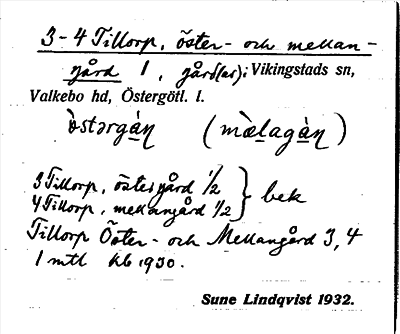 3-4 Tillorp, öster- och mellan-
gård 1, gård(ar); Vikingstads sn,
Valkebo hd, Östergötl. l.
òstərgán (mælagàn)
3 Tillorp, östergård 1/2 } bek
4 Tillorp, mellangård 1/2
Tillorp Öster- och Mellangård 3, 4
1 mtl kb 1930.
Sune Lindqvist 1932.